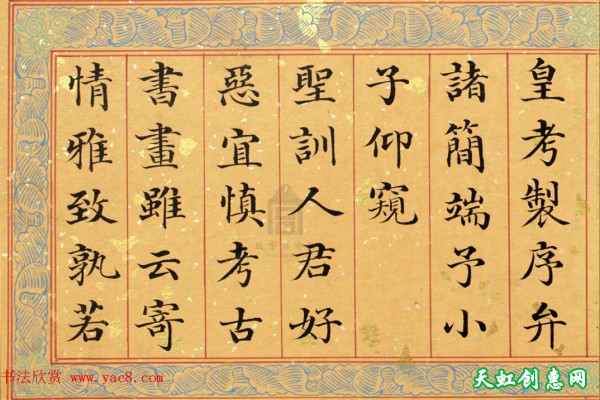 皇考製序弁
諸簡端予小
子仰窺
聖訓人君好
惡宜慎考古
書畫雖云寄
情雅致孰若
书法欣赏 www.yac8.com
天虹创惠网